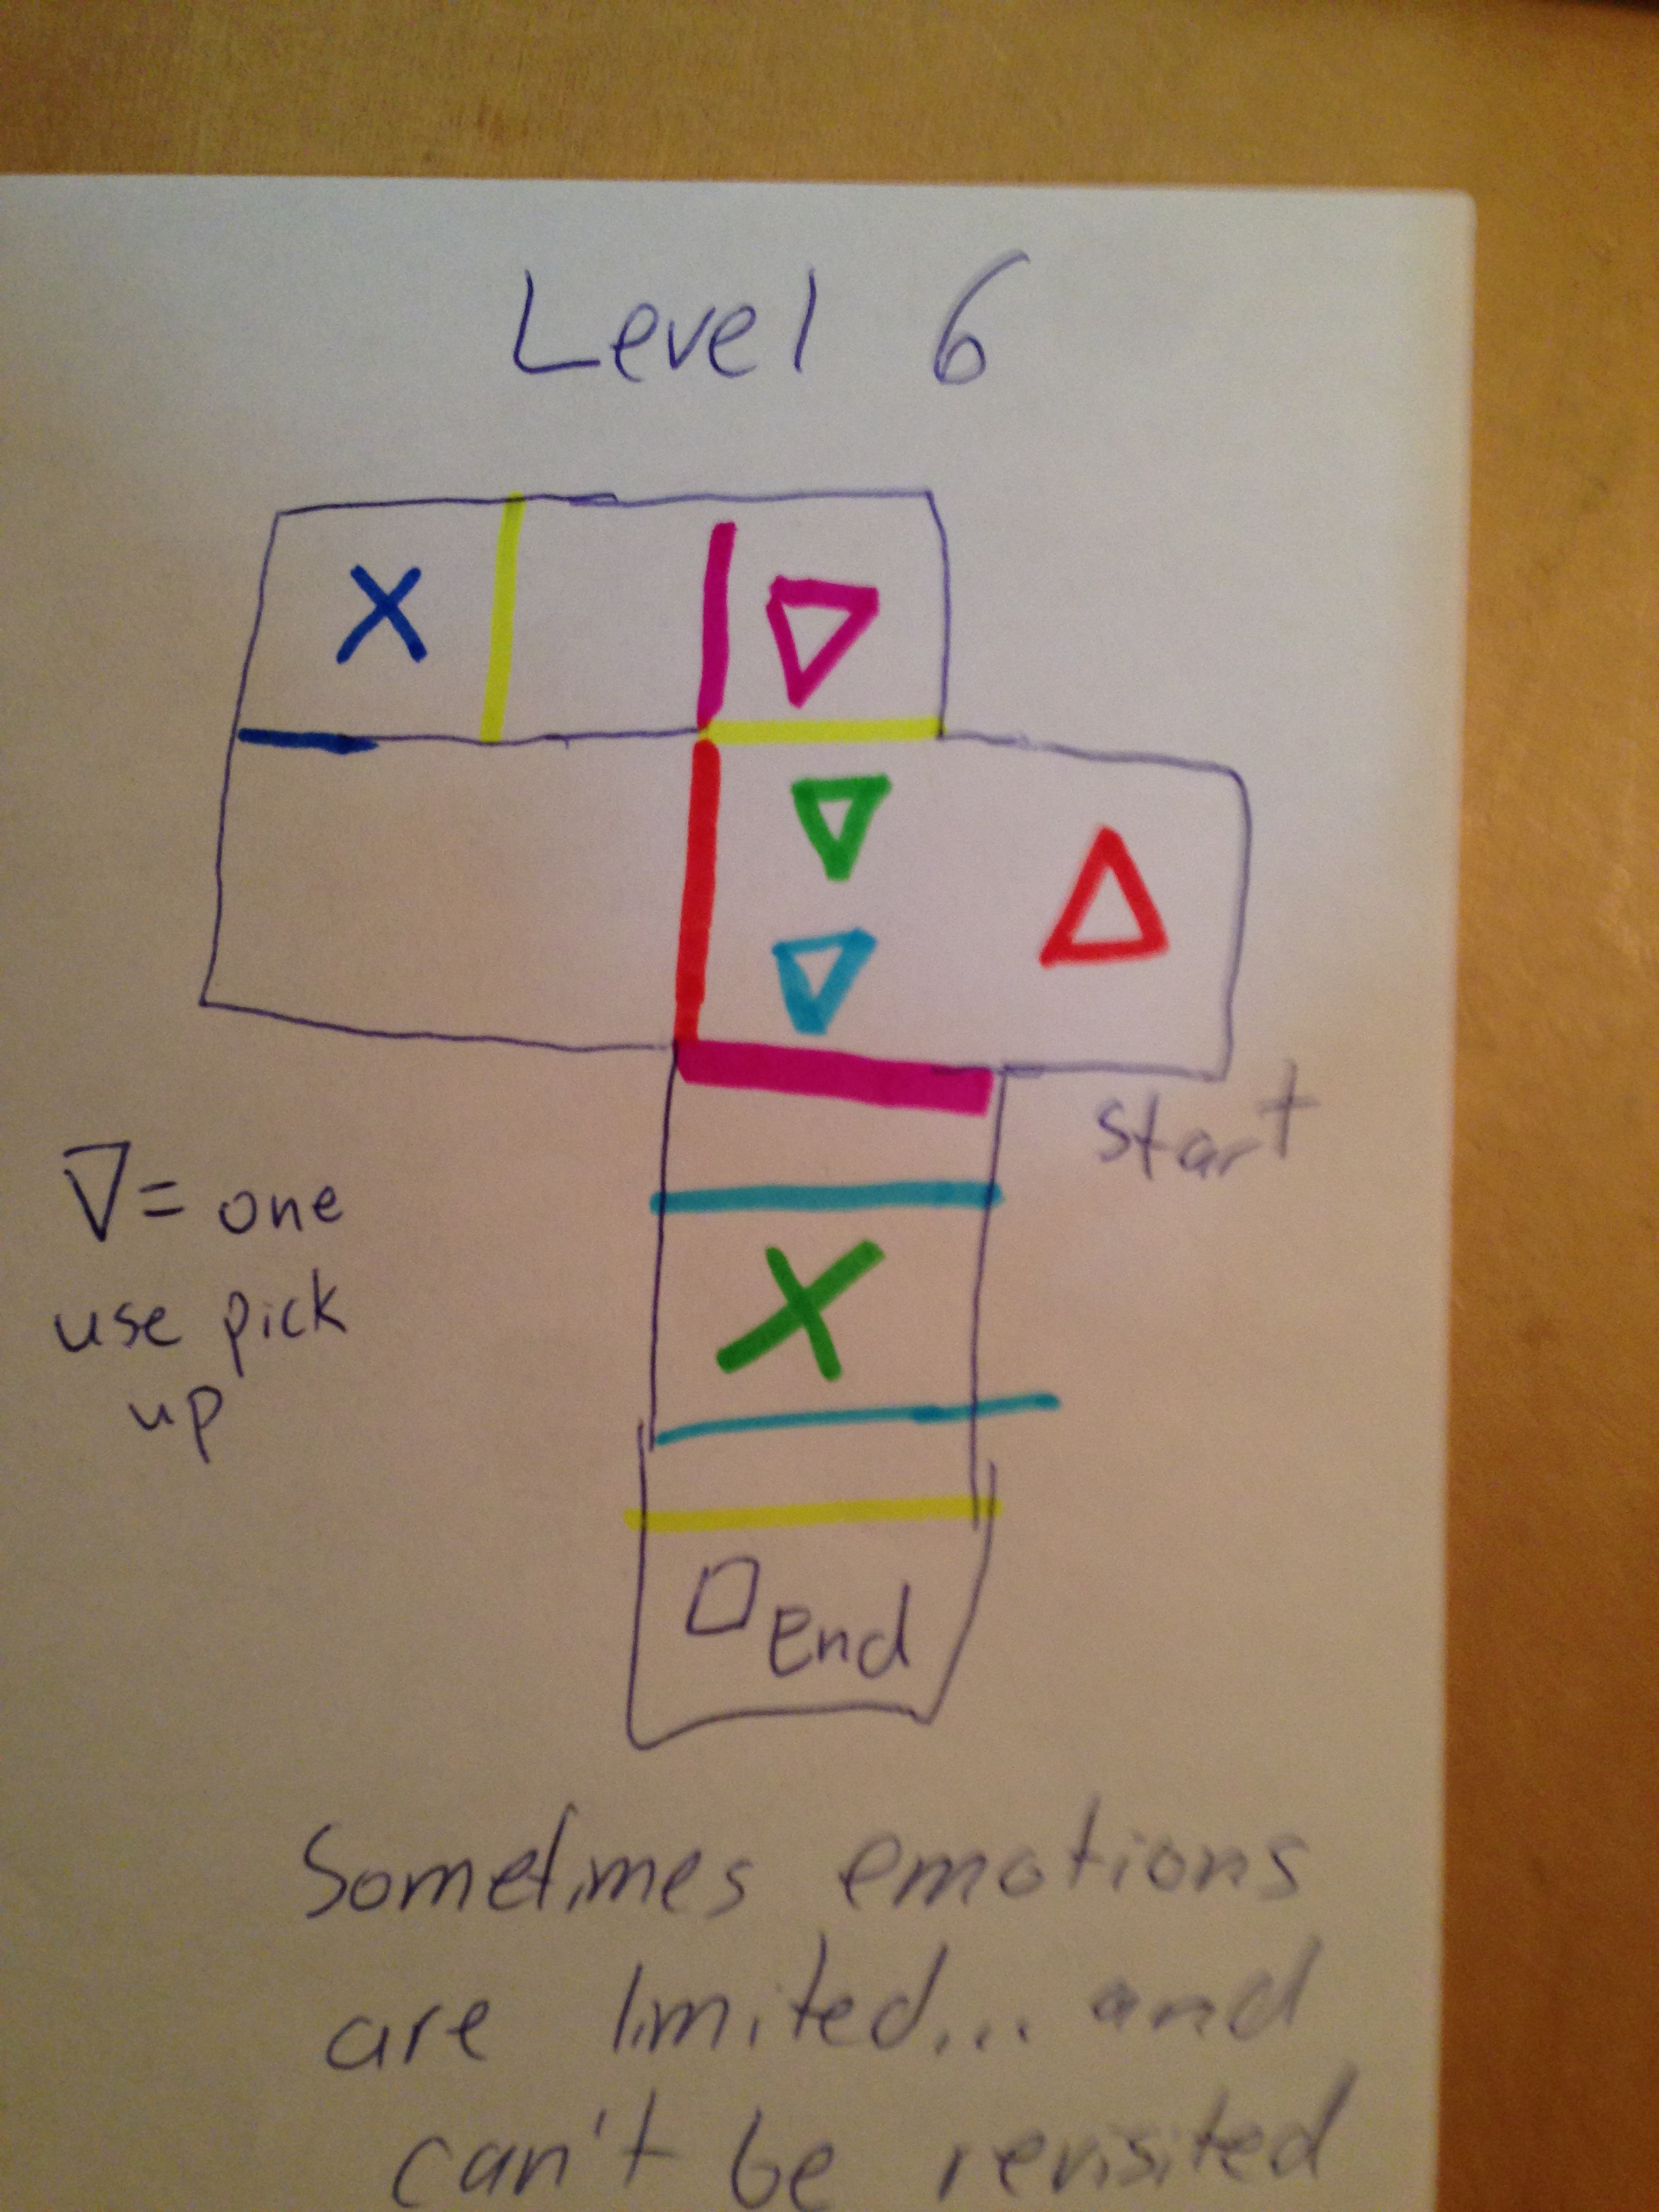 Level 6
start
▽= one
use pick
up
End
Sometimes emotions
are limited... and
can't be revisited